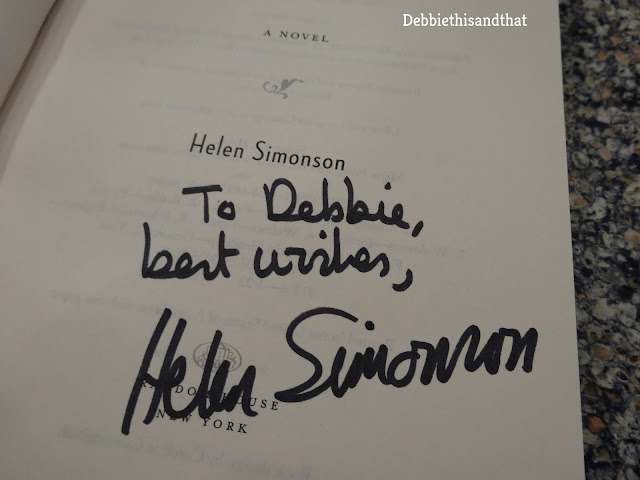 Debbiethisandthat
A NOVEL
Helen Simonson
To Debbie,
best wishes,
Helen Simonson
RANDOM HOUSE
NEW YORK